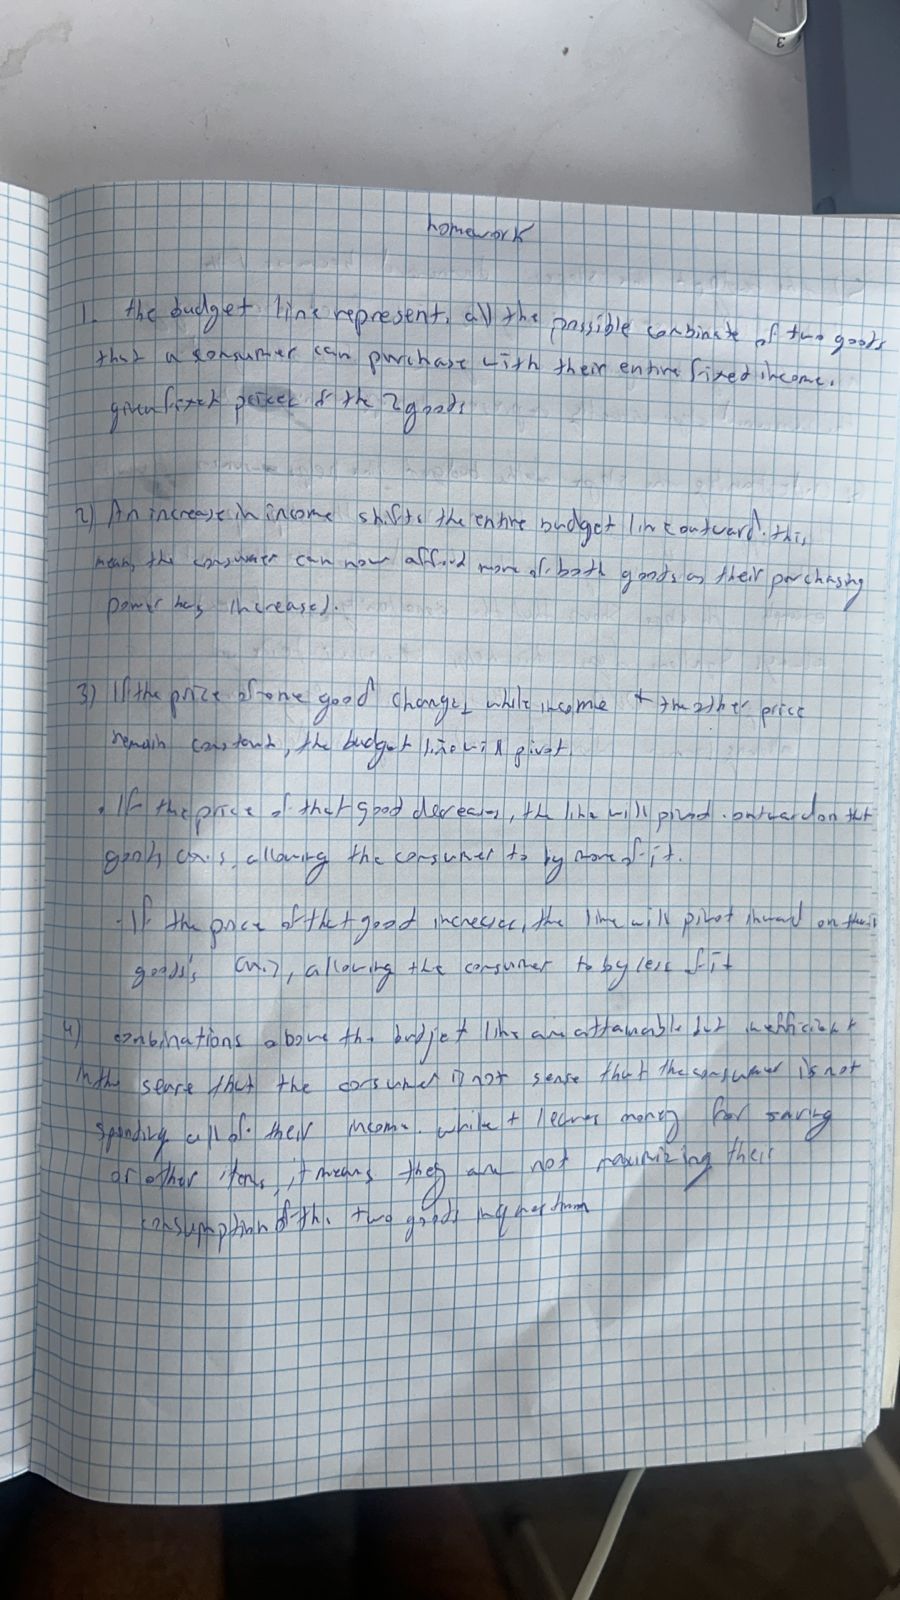 homework
1. the budget line represents all the possible combinate of two goods
that a consumer can purchase with their entire fixed income.
given fixed prices of the 2 goods
2) An increase in income shifts the entire budget line outward. this
means the consumer can now afford more of both goods as their purchasing
power has increased.
3) If the price of one good changes while income + the other price
remain constant, the budget line will pivot.
. If the price of that good decreases, the line will pivot outward on that
goods axis, allowing the consumer to by more of it.
- If the price of that good increases, the line will pivot inward on their
good's axis, allowing the consumer to by less of it
4) combinations above the budjet line are attainable but inefficient
in the sense that the consumer is not sense that the consumer is not
spending all of their income. while + leaves money for saving
or other items, it means they are not maximizing their
consumption of the two goods in question